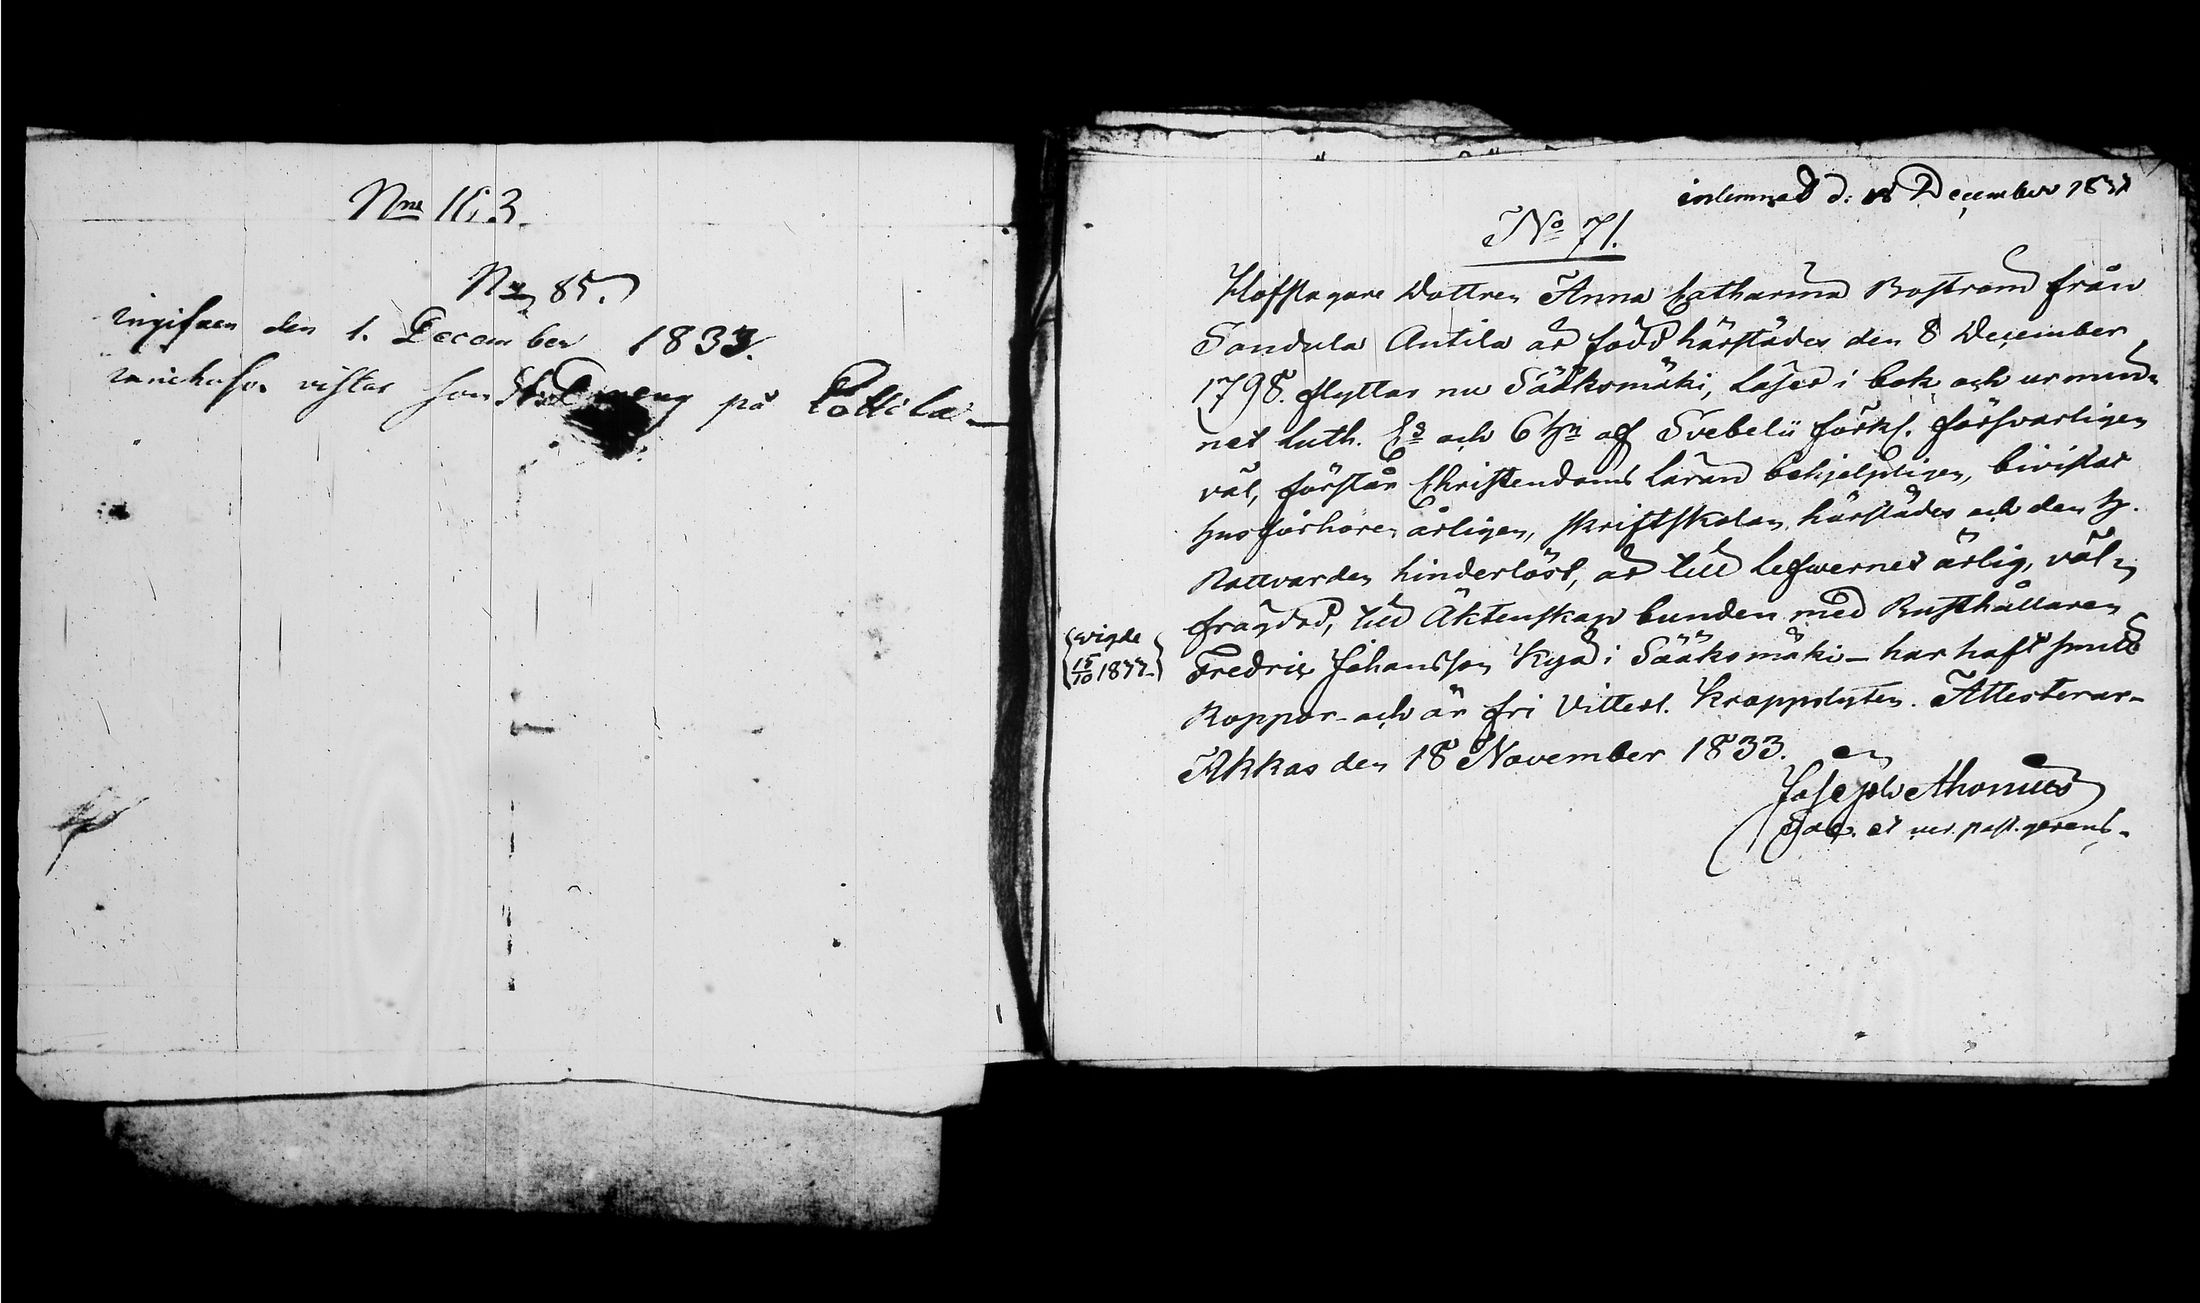 Nrne 163.
Nr 85.
ingifven den 1. December 1833.
vistas som på Pottila
inlemnad d: 18 December 1833
No 71.
Hofslagare Dottren Anna Catharina Boström från
Sondula Antila är född härstädes den 8 December
1798. flyttar nu Sääksmäki, läser i bok och ur min-
net Luth. Cs och 6 Hn af Svebelii förkl. försvarligen
väl, förstår Christendoms Läran behjelpligen, bivistat
Husförhören årligen, skriftskolan härstädes och den H.
Nattvarden hinderlöst, är till Lefvernet ärlig, väl-
frägdad, till Äktenskap bunden med Rusthållaren
Fredric Johansson Kyä i Sääksmäki – har haft smitt
Koppor – och är fri vitterl. Kroppslyten. Attesterar –
Akkas den 18 November 1833.
Joseph Ahonius
Sac. et ver. past. gerens.
vigde
15/10 1833.